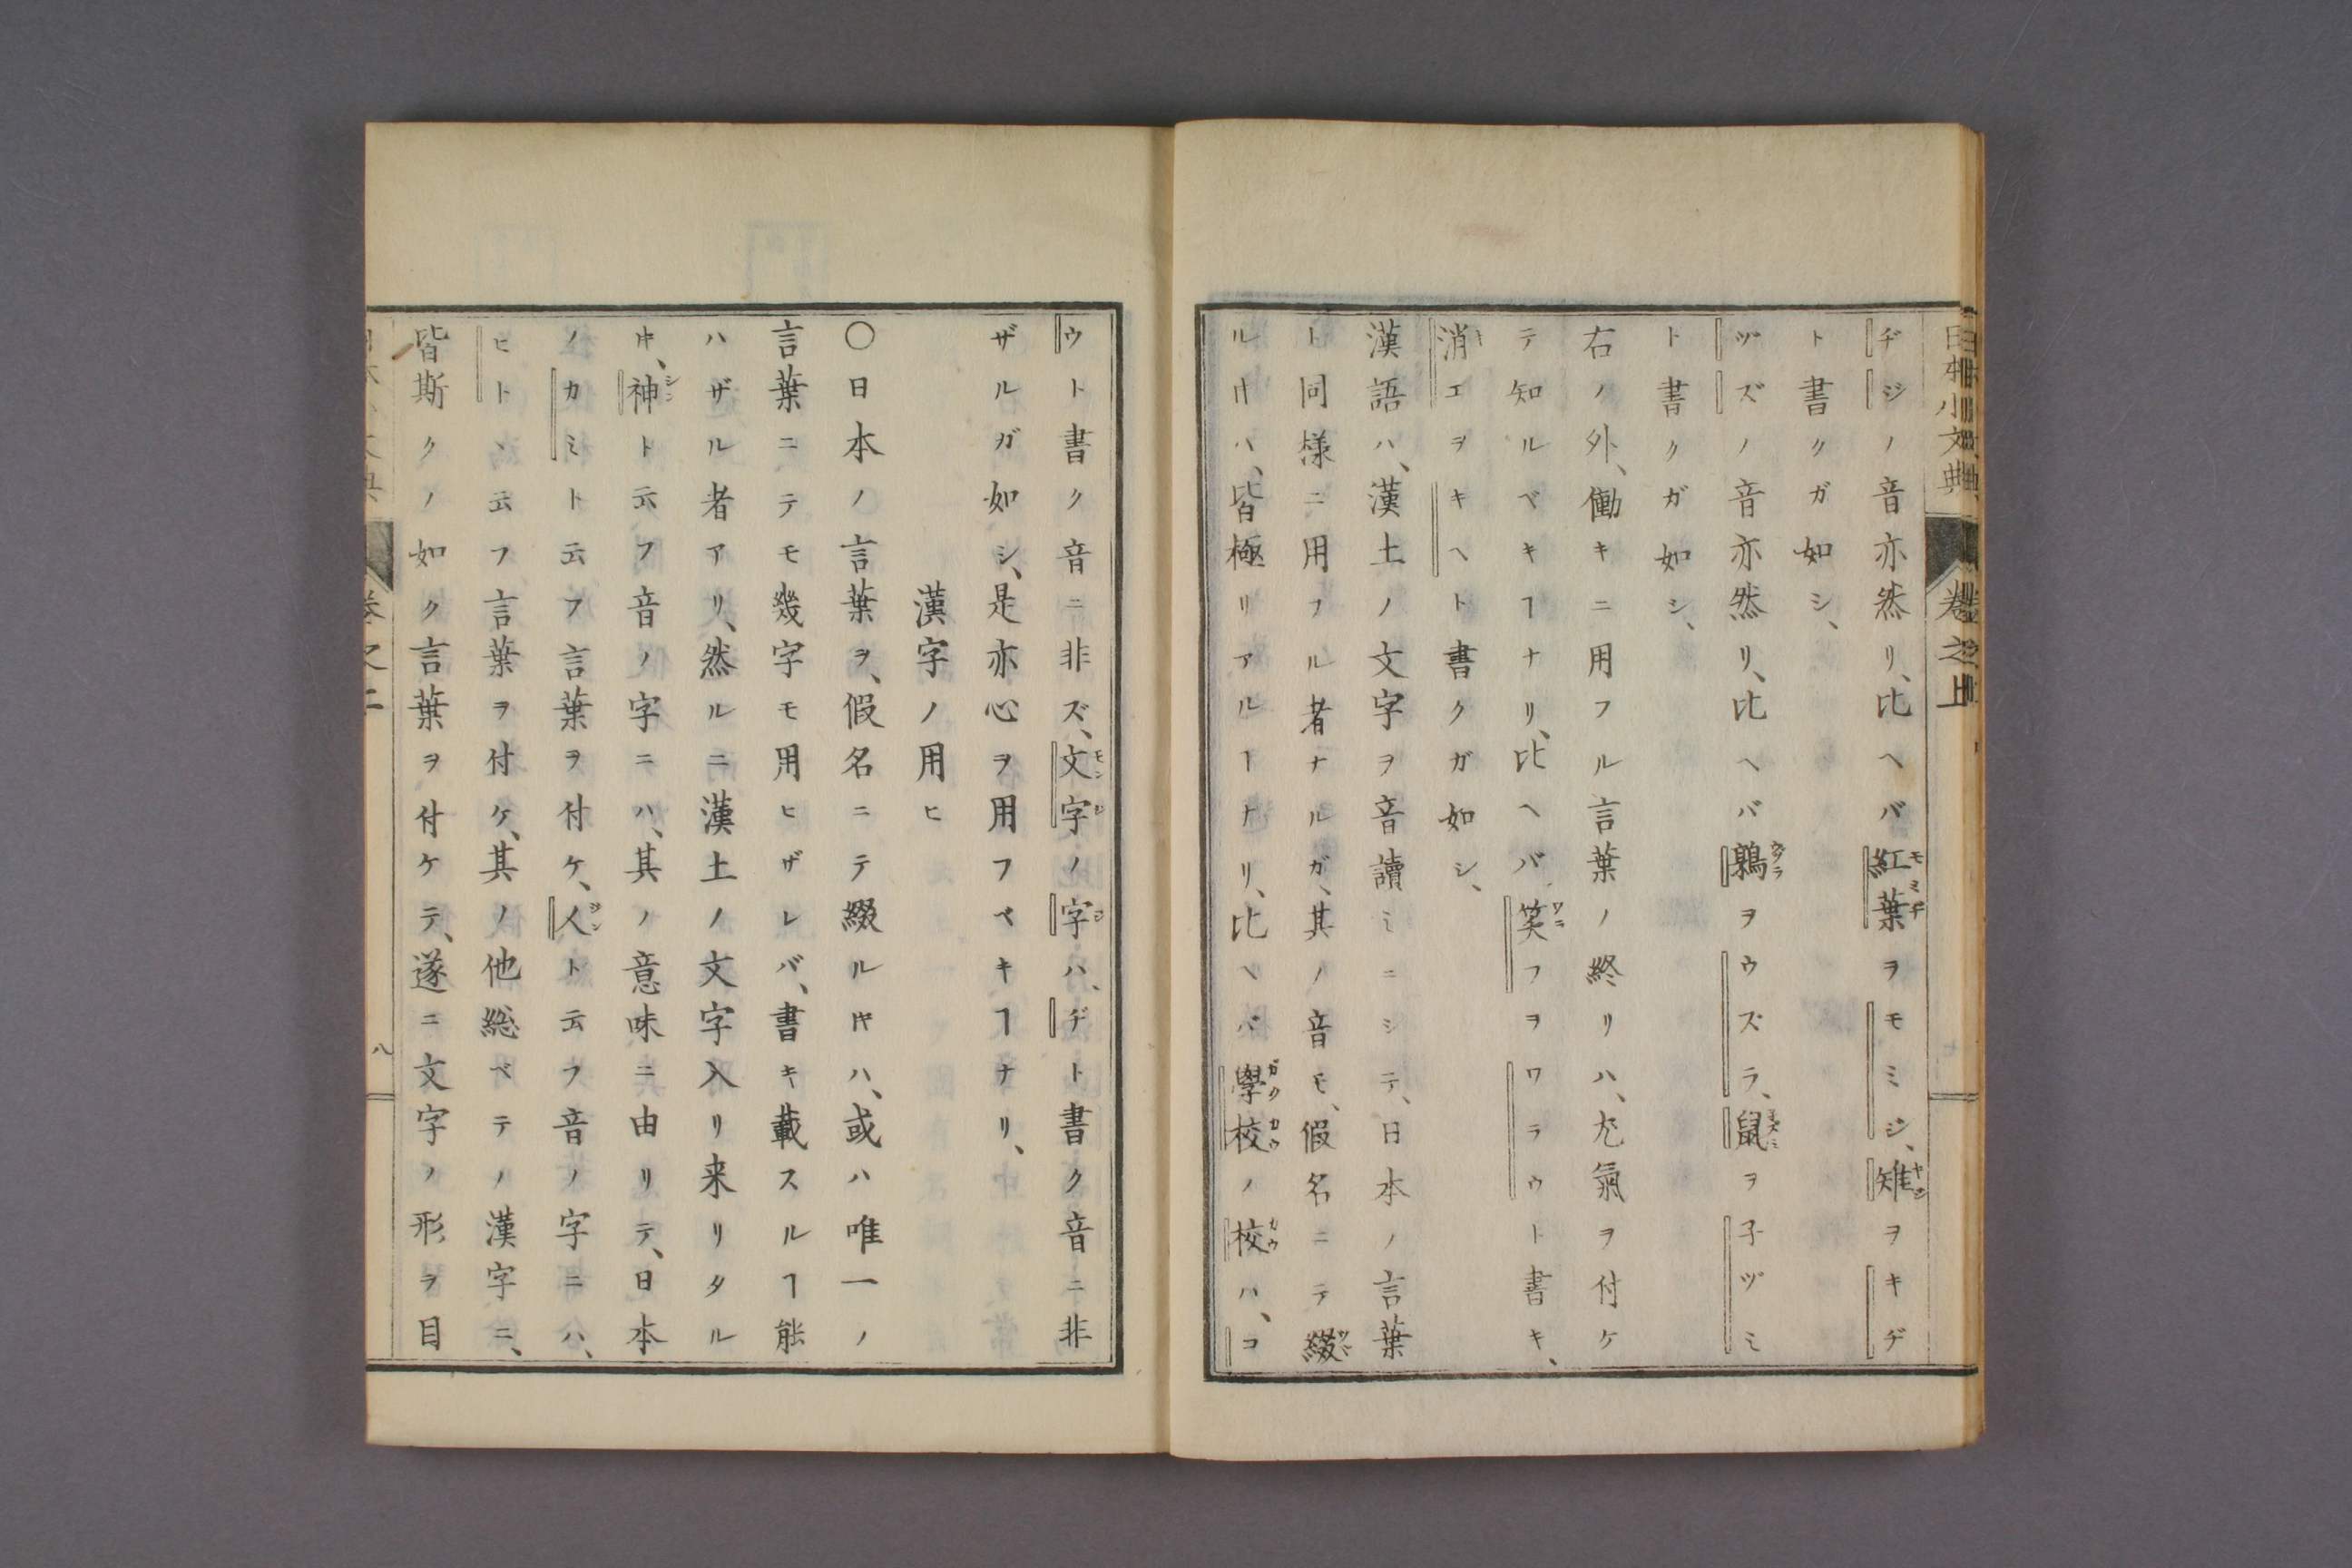 日本小文典 卷之上
ヂジノ音亦然リ、比ヘバ紅葉ヲモミジ、雉ヲキヂ
ト書クガ如シ、
ヅズノ音亦然リ、比ヘバ鶉ヲウズラ、鼠ヲ子ヅミ
ト書クガ如シ、
右ノ外、働キニ用フル言葉ノ終リハ、尤氣ヲ付ケ
テ知ルベキヿナリ、比ヘバ笑フヲワラウト書キ、
消エヲキヘト書クガ如シ、
漢語ハ、漢土ノ文字ヲ音讀ミニシテ、日本ノ言葉
ト同様ニ用フル者ナルガ、其ノ音モ、假名ニテ綴
ル㪅ハ、皆極リアルヿナリ、比ヘバ學校ノ校ハ、コ
ウト書ク音ニ非ズ、文字ノ字ハ、ヂト書ク音ニ非
ザルガ如シ、是亦心ヲ用フベキヿナリ、
漢字ノ用ヒ
〇日本ノ言葉ヲ、假名ニテ綴ルヰハ、或ハ唯一ノ
言葉ニテモ幾字モ用ヒザレバ、書キ載スルヿ能
ハザル者アリ、然ルニ漢土ノ文字入リ来リタル
ヰ、神ト云フ音ノ字ニハ、其ノ意味ニ由リテ、日本
ノカミト云フ言葉ヲ付ケ、人ト云フ音ノ字ニハ、
ヒトヽ云フ言葉ヲ付ケ、其ノ他総ベテノ漢字ニ、
皆斯クノ如ク言葉ヲ付ケテ、遂ニ文字ノ形ヲ目
八